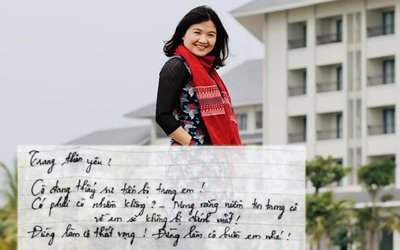 Trang thân yêu!
Cô đang thấy sự tiến bộ trong em!
Có phải cô nhiên không? - Nhưng rằng niềm tin trong cô
về em sẽ không bị đánh mất!
Đừng làm cô thất vọng! Đừng làm cô buồn em nhé!